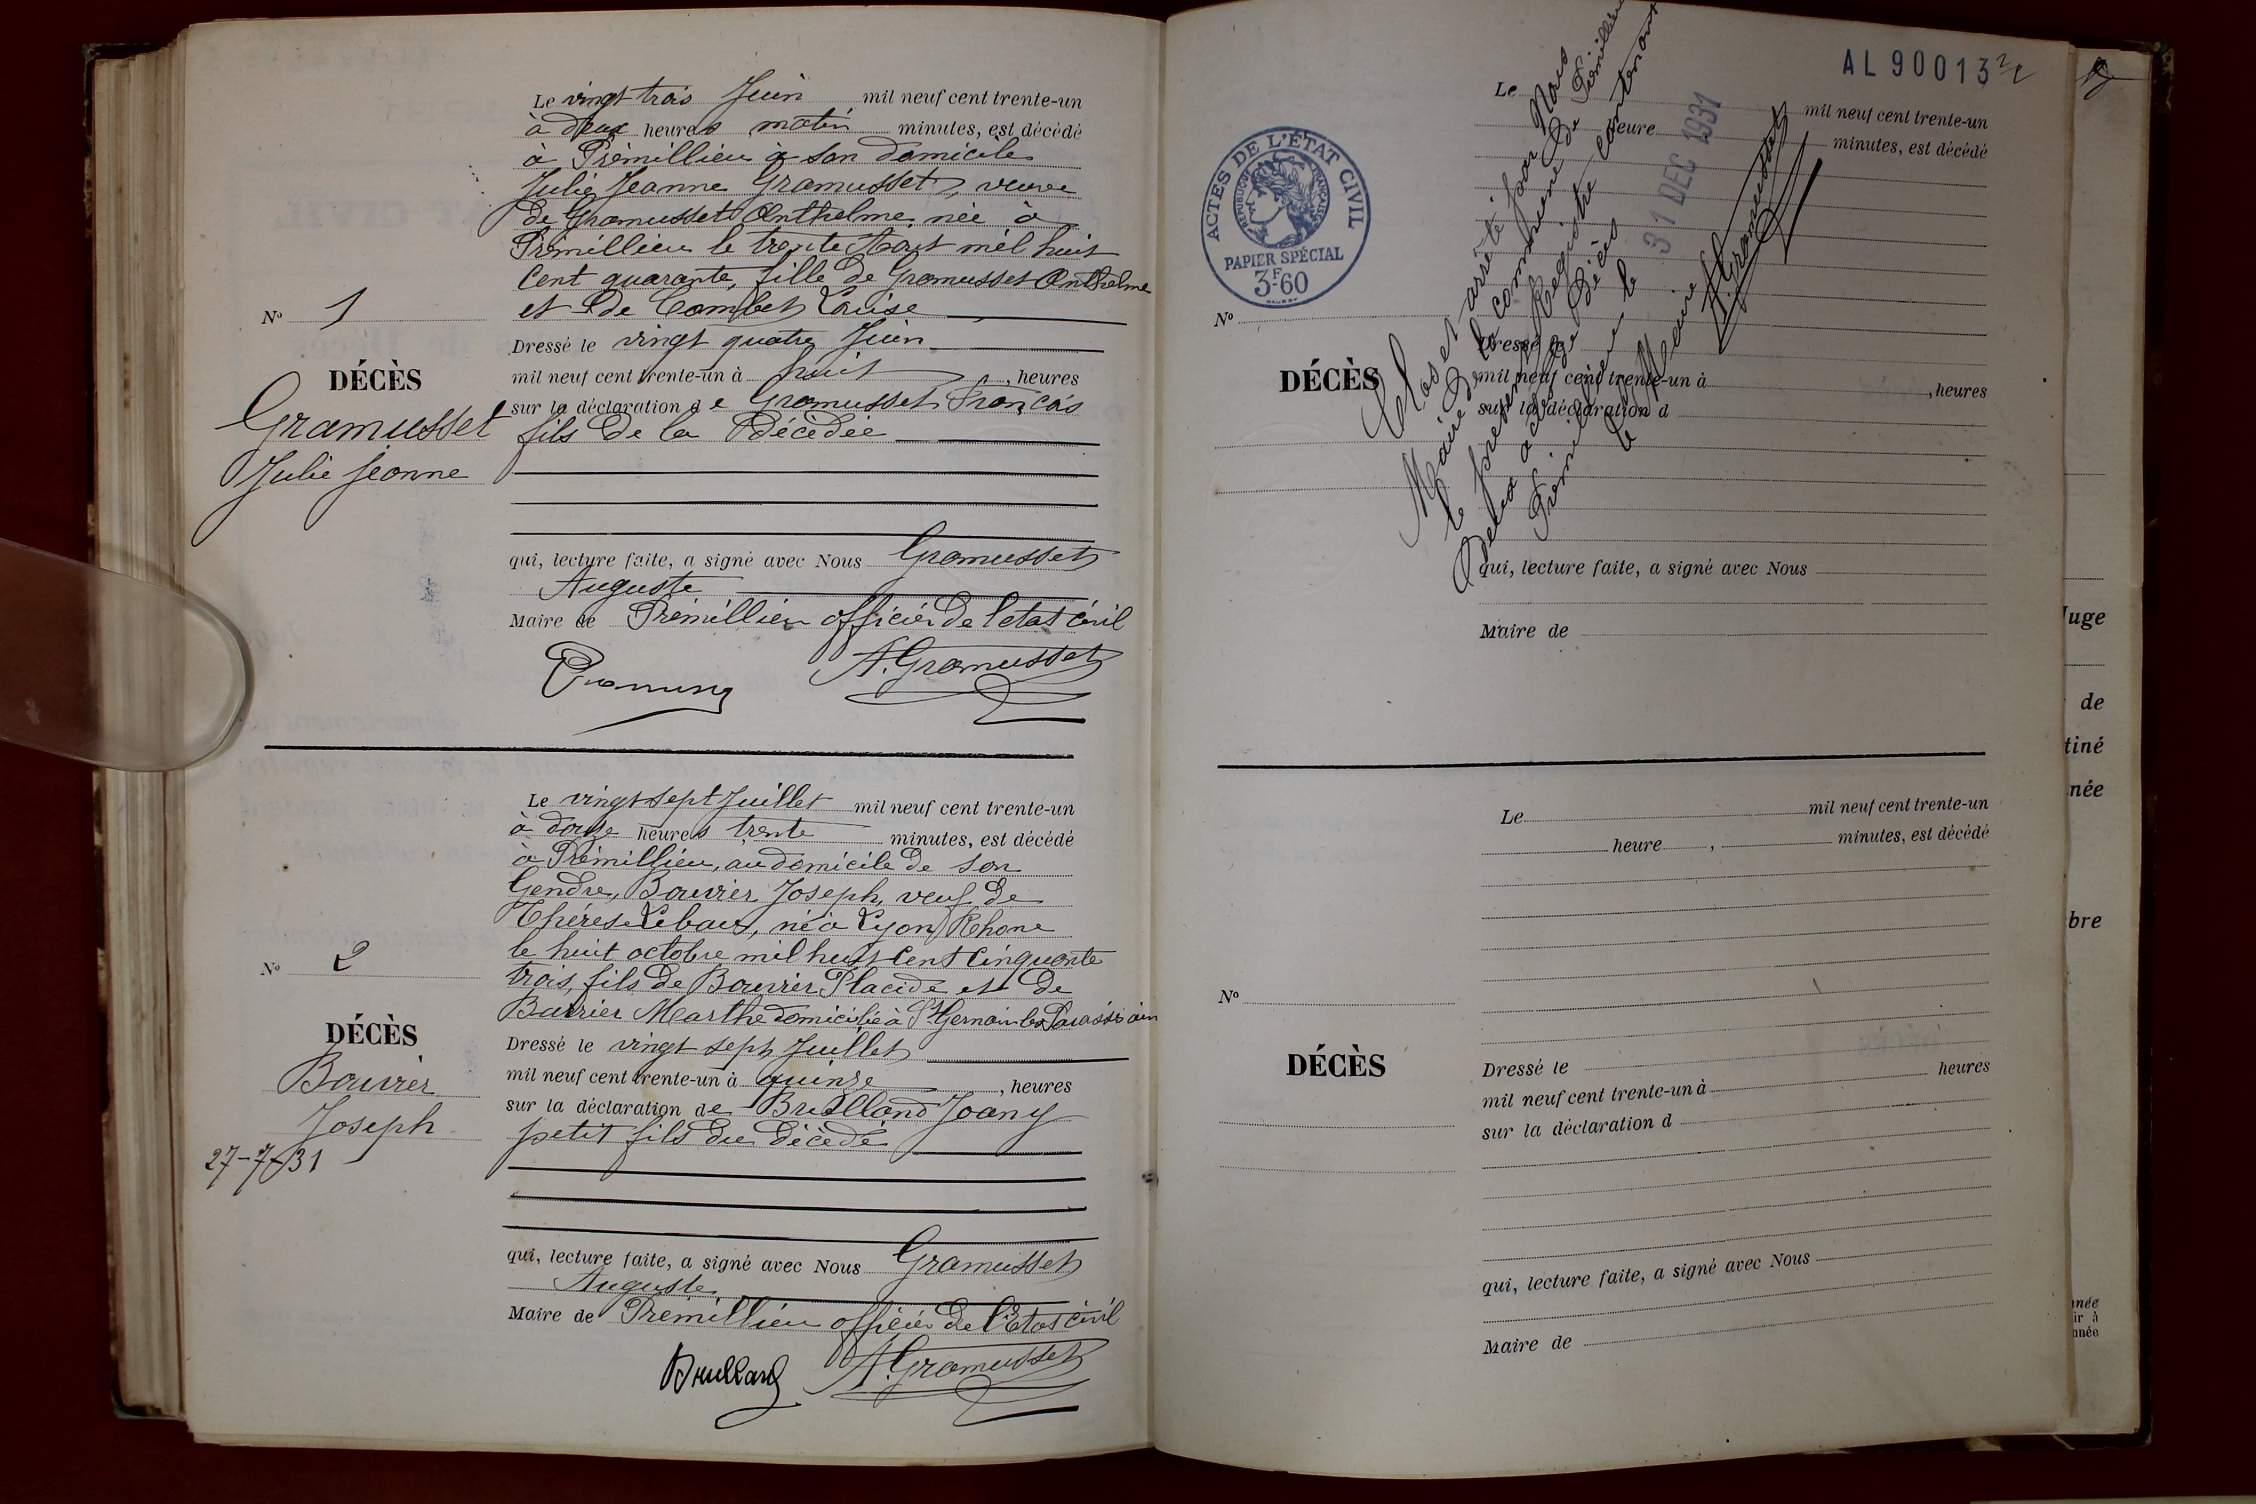 Le vingt trois Juin mil neuf cent trente-un
à deux heures matin minutes, est décédé
à Prémillieu à son domicile
Julie Jeanne Gramusset, veuve
de Gramusset Anthelme née à
Prémillieu le trente Aout mil huit
cent quarante, fille de Gramusset Anthelme
et de Combet Louise
Dressé le vingt quatre Juin
mil neuf cent trente-un à huit, heures
sur la déclaration de Gramusset François
fils de la Décédée
qui, lecture faite, a signé avec Nous Gramusset
Auguste
Maire de Prémillieu officier de l'etat civil
A. Gramusset
N° 1
DÉCÈS
Gramusset
Julie Jeanne
Le vingt sept Juillet mil neuf cent trente-un
à douze heures trente minutes, est décédé
à Prémillieu, au domicile de son
Gendre, Bouvier Joseph, veuf de
Thérèse, né à Lyon Rhone
le huit octobre mil huit cent cinquante
trois, fils de Bouvier Placide et de
Marthe domicilié à St Germain les Paroisses ain
Dressé le vingt sept Juillet
mil neuf cent trente-un à quinze, heures
sur la déclaration de Brulland Joany
petit fils du décédé
qui, lecture faite, a signé avec Nous Gramusset
Auguste
Maire de Prémillieu officier de l'Etat civil
Brulland A. Gramusset
N° 2
DÉCÈS
Bouvier
Joseph
27-7-31
AL 90013
ACTES DE L'ÉTAT CIVIL
RÉPUBLIQUE FRANÇAISE
PAPIER SPÉCIAL
3F60
Le mil neuf cent trente-un
heure minutes, est décédé
N°
DÉCÈS
Dressé le
mil neuf cent trente-un à , heures
sur la déclaration d
qui, lecture faite, a signé avec Nous
Maire de
Clos et arrêté par Nous
Maire de la commune de Prémillieu
le présent Registre contenant
Deux actes de Décès
Prémillieu le 31 DEC 1931
le Maire
A. Gramusset
Le mil neuf cent trente-un
heure , minutes, est décédé
N°
DÉCÈS
Dressé le
mil neuf cent trente-un à heures
sur la déclaration d
qui, lecture faite, a signé avec Nous
Maire de
Juge
de
tiné
née
bre
nnée
ir à
nnée